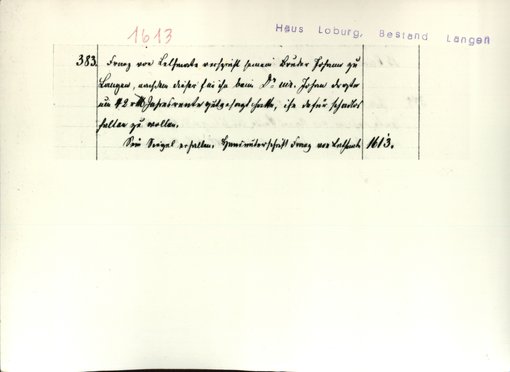 1613
Haus Loburg, Bestand Langen
383. Franz von Lethmate verspricht seinem Bruder Johann zu
Langen, nachdem dieser für ihn beim Dr. Johan
um 42 Jahresrente gutgesagt hatte, ihn dafür schadlos
halten zu wollen.
Sein Siegel erhalten. Handunterschrift Franz von Lethmate 1613.